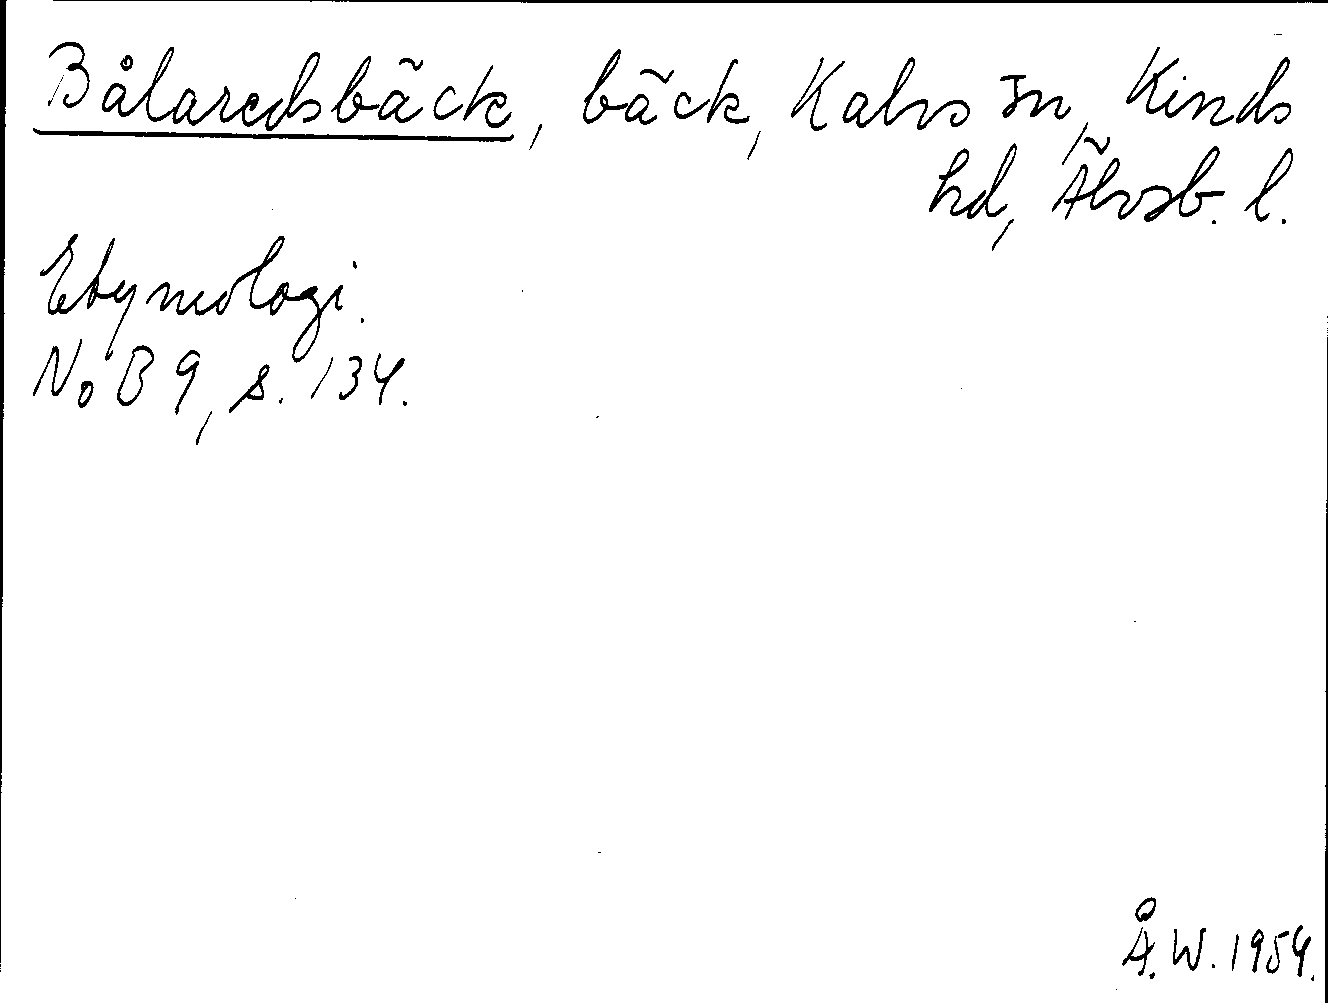 Bålaredsbäck, bäck, Kalvs sn, Kinds
hd, Älvsb. l.
Etymologi.
NoB 9, s. 134.
Å.W. 1954.